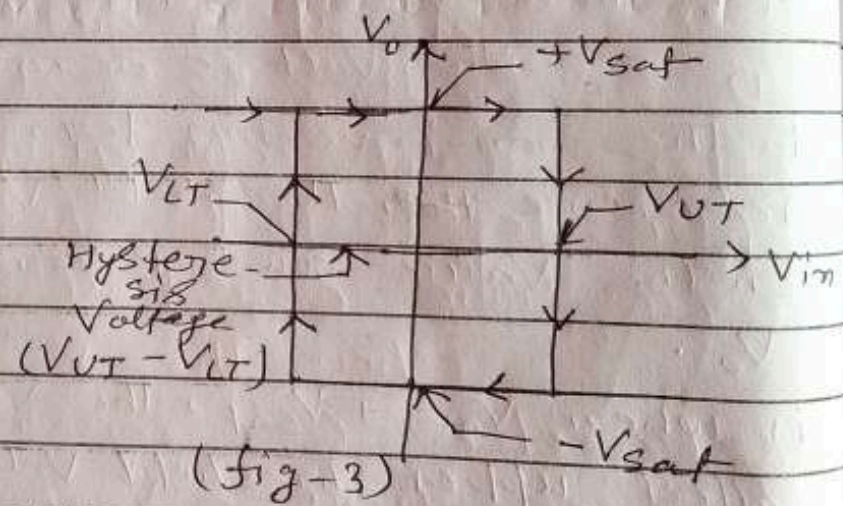 V₀
+Vsat
V_LT
V_UT
Hystere-
sis
Voltage
(V_UT - V_LT)
Vin
-Vsat
(fig-3)